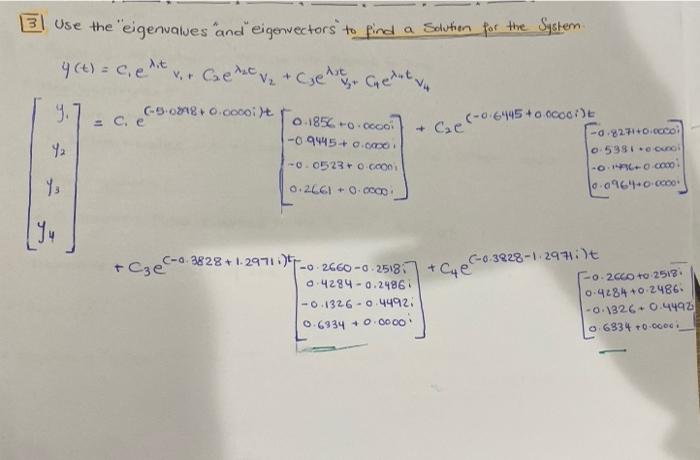 3 Use the "eigenvalues" and "eigenvectors" to find a Solution for the System.
y(t) = C₁e^λ₁t V₁ + C₂e^λ₂t V₂ + C₃e^λ₃t V₃ + C₄e^λ₄t V₄
[y₁ y₂ y₃ y₄] = C₁ e^(-5.0898+0.0000i)t [0.1856+0.0000i -0.9445+0.0000i -0.0523+0.0000i 0.2661+0.0000i] + C₂e^(-0.6445+0.0000i)t [-0.8271+0.0000i 0.5381+0.0000i -0.1496+0.0000i 0.0964+0.0000i]
+ C₃e^(-0.3828+1.2971i)t [-0.2660-0.2518i 0.4284-0.2486i -0.1326-0.4492i 0.6334+0.0000i] + C₄e^(-0.3828-1.2971i)t [-0.2660+0.2518i 0.4284+0.2486i -0.1326+0.4492i 0.6334+0.0000i]